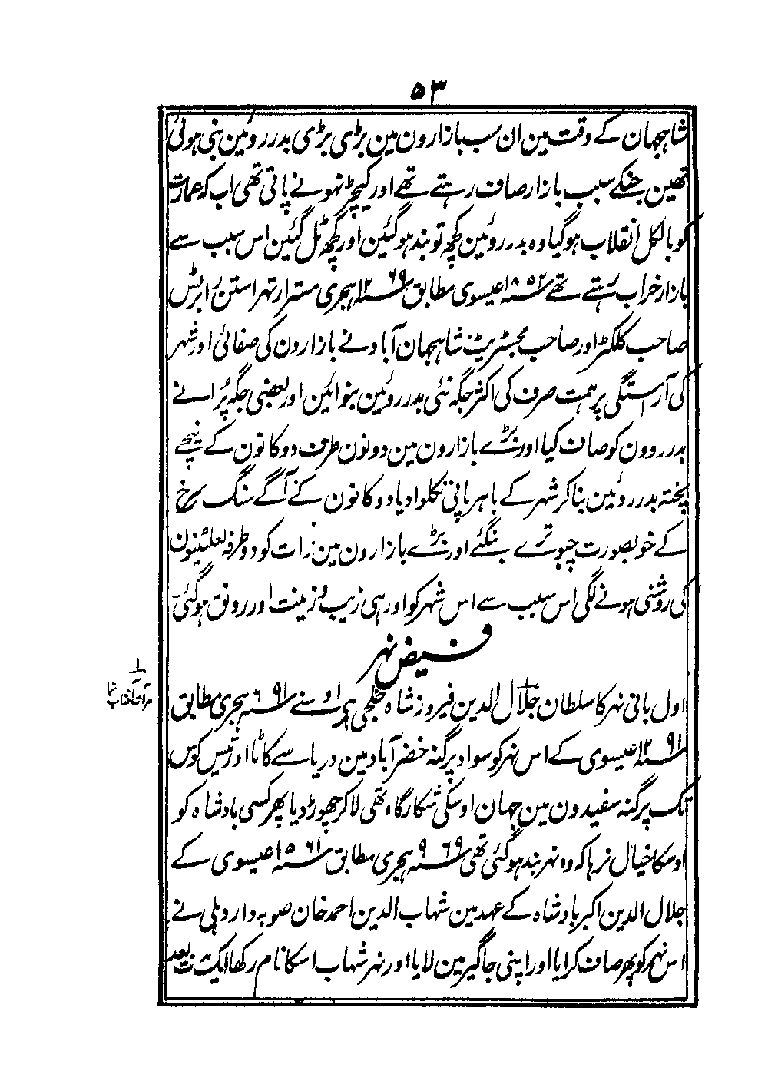 ۵۳
شاہجہان کے وقت مین ان سب بازارون مین بڑی بڑی بدر روئین بنی ہوئی
تھین جنکے سبب بازار صاف رہتے تھے اور کیچڑ نہونے پاتی تھی اب کہ عمارت
کو بالکل انقلاب ہو گیا وہ بدر روئین کچھ تو بند ہو گئین اور کچھ ٹل گئین اس سبب سے
بازار خراب رہتے تھے سنہ ۱۸۵۲ عیسوی مطابق سنہ ۱۲۶۹ ہجری مسترارتھر آسٹن رابرٹس
صاحب کلکٹر اور صاحب مجسٹریٹ شاہجہان آباد نے بازارون کی صفائی اور شہر
کی آراستگی پر ہمت صرف کی اکثر جگہ نئی بدر روئین بنوائین اور بعضی جگہ پرانے
بدر روون کو صاف کیا اور بڑے بازارون مین دونون طرف دوکانون کے نیچے
پختہ بدر روئین بنا کر شہر کے باہر پانی نکلوا دیا دوکانون کے آگے سنگ سرخ
کے خوبصورت چبوترے بنگئے اور بڑے بازارون مین رات کو دو طرفہ لعلٹینون
کی روشنی ہونے لگی اس سبب سے اس شہر کو اور ہی زیب و زینت اور رونق ہو گئی
فیض نہر
اول بانی نہر کا سلطان جلال الدین فیروز شاہ خلجی ہی اوسنے سنہ ۶۹۱ ہجری مطابق
مرآۃ آفتاب نما
سنہ ۱۲۹۱ عیسوی کے اس نہر کو سواد پرگنہ خضرآباد مین دریا سے کاٹا اور تیس کوس
تک پرگنہ سفیدون مین جہان اوسکی شکارگاہ تھی لا کر چھوڑ دیا پھر کسی بادشاہ کو
اوسکا خیال نرہا کہ وہ نہر بند ہو گئی تھی سنہ ۹۶۹ ہجری مطابق سنہ ۱۵۶۱ عیسوی کے
جلال الدین اکبر بادشاہ کے عہد مین شہاب الدین احمد خان صوبہ دار دہلی نے
اس نہر کو پھر صاف کرایا اور اپنی جاگیر مین لایا اور نہر شہاب اسکا نام رکھا ایک مدت بعد